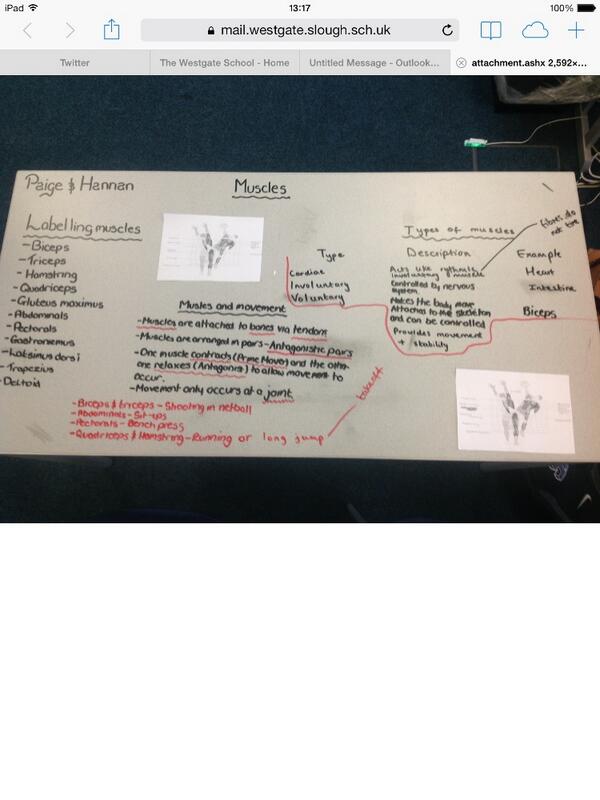 iPad
13:17
100%
mail.westgate.slough.sch.uk
Twitter
The Westgate School - Home
Untitled Message - Outlook...
attachment.ashx 2,592×...
Paige & Hannan
Muscles
Labelling muscles
- Biceps
- Triceps
- Hamstring
- Quadriceps
- Gluteus maximus
- Abdominals
- Pectorals
- Gastroniemus
- Latisimus dorsi
- Trapezius
- Deltoid
Musles and movement
- Muscles are attached to bones via tendons
- Muscles are arranged in pairs - Antagonistic pairs
- One muscle contracts (Prime Mover) and the other
one relaxes (Antagonist) to allow movement to
occur.
- Movement only occurs at a joint
- Biceps & triceps - Shooting in netball
- Abdominals - Sit-ups
- Pectorals - Bench press
- Quadriceps & Hamstring - Running or long jump
takeoff
Types of muscles
fibres do
not tire
Type
Description
Example
Cardiac
Acts like rythmic
involuntary muscle
Heart
Involuntary
Controlled by nervous
system
Intestine
Voluntary
Makes the body move
Attaches to the skeleton
and can be controlled
Biceps
Provides movement
+ stability